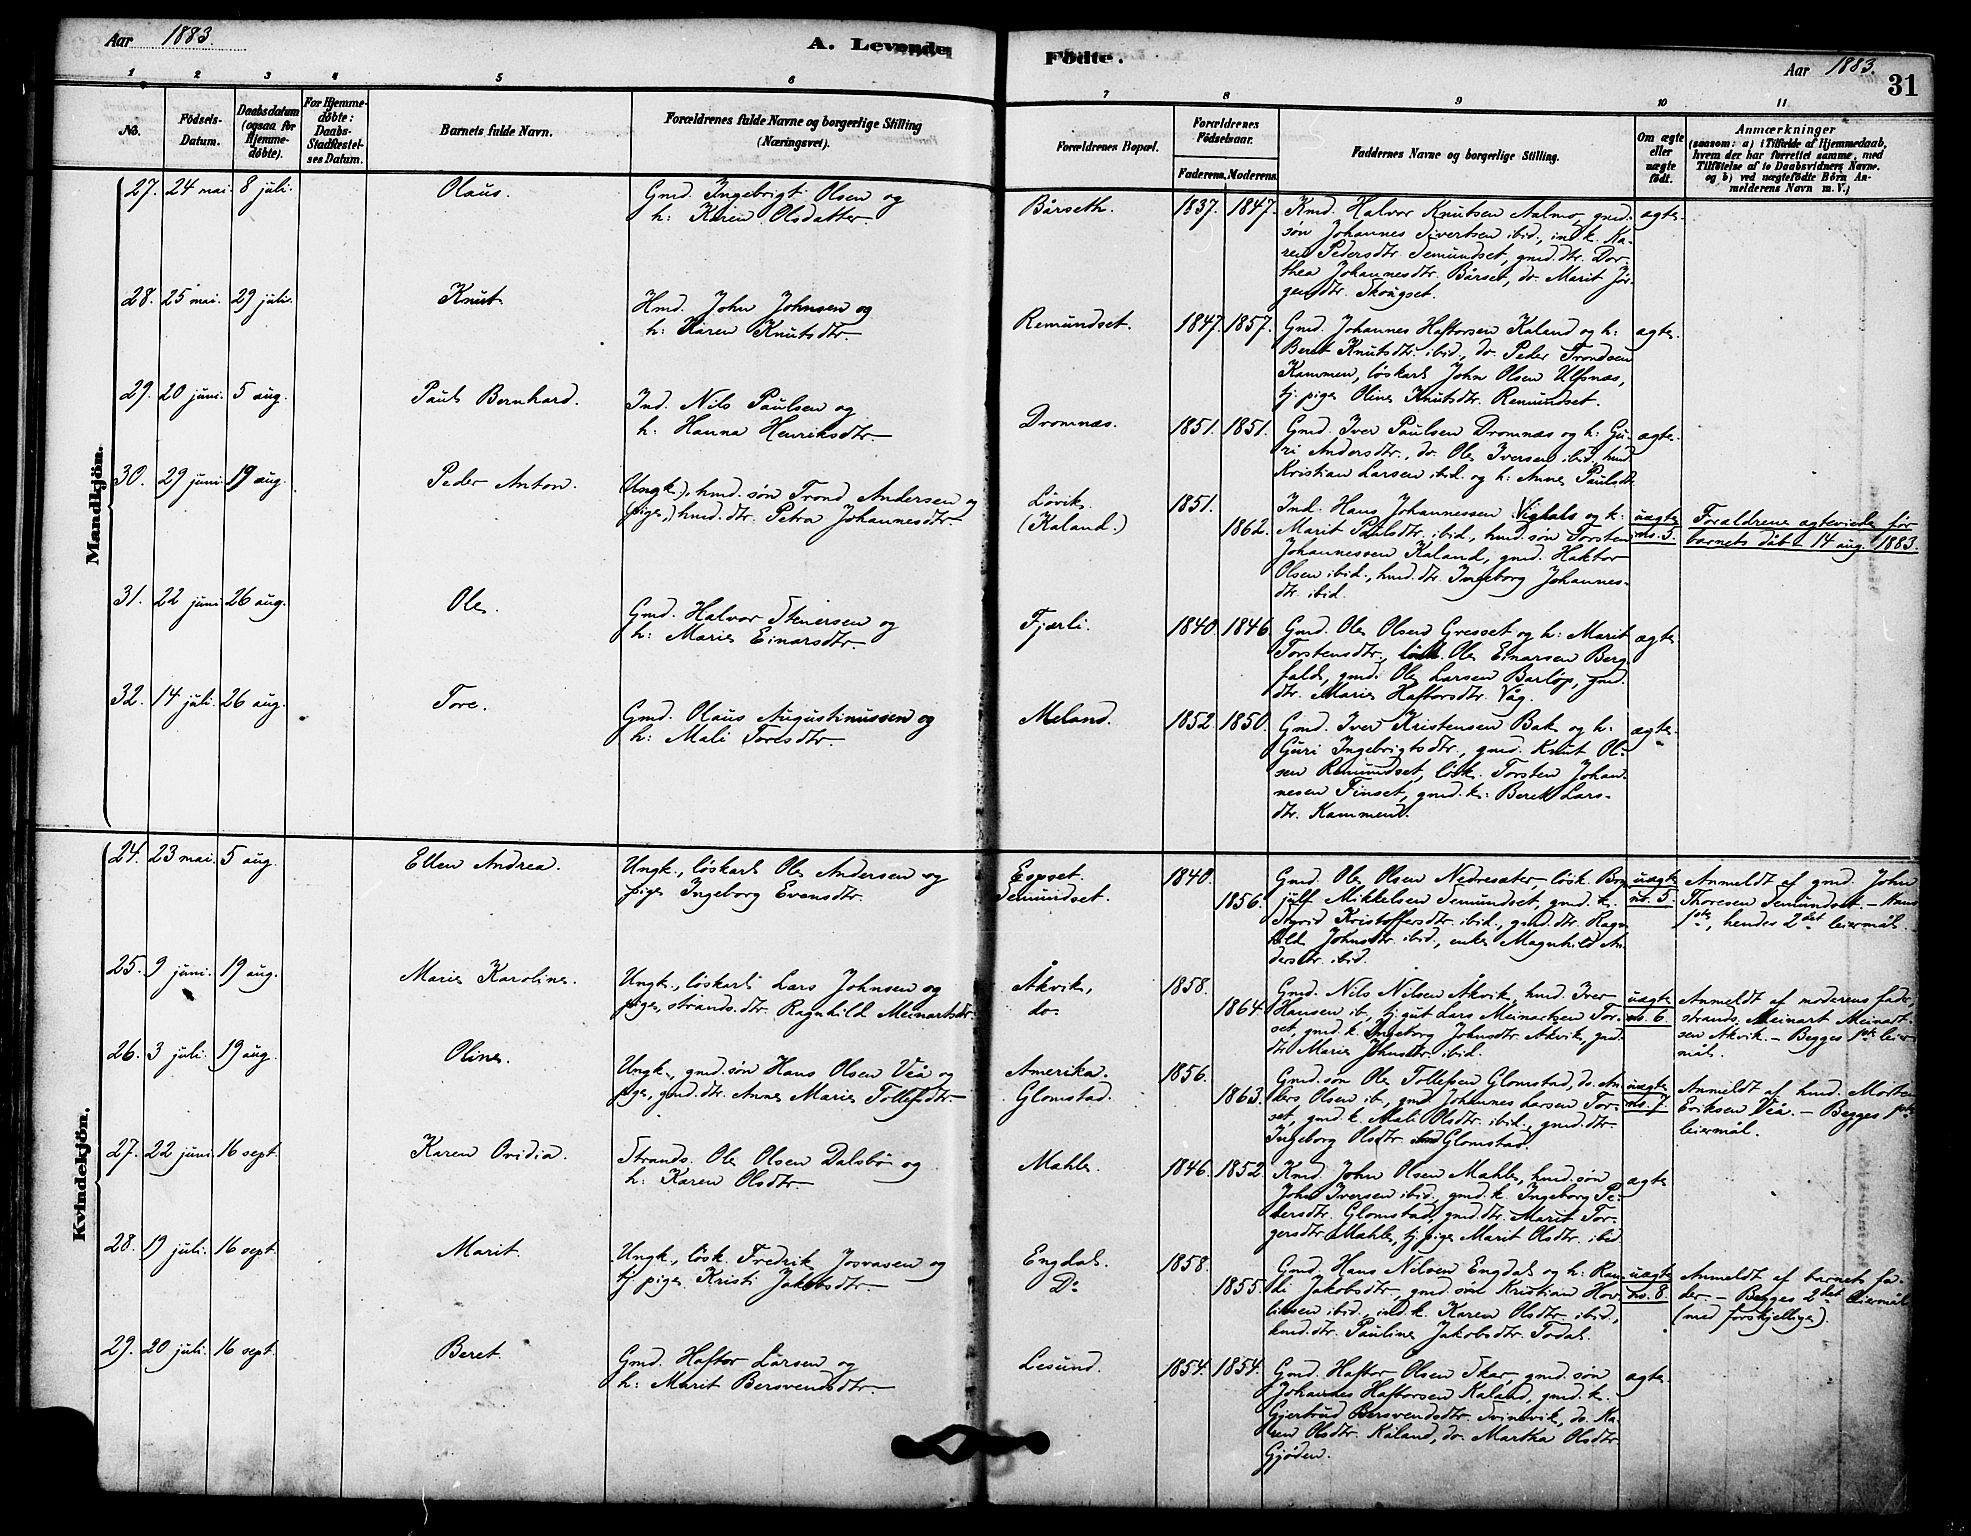 Aar 1883.
A. Levende Födte.
Aar 1883.
31
1 2 3 4 5 6 7 8 9 10 11
No.
Födsels-
Datum.
Daabsdatum
(ogsaa for
Hjemme-
döbte).
For Hjemme-
döbte:
Daabs-
Stadfæstel-
ses Datum.
Barnets fulde Navn.
Forældrenes fulde Navne og borgerlige Stilling
(Næringsvei).
Forældrenes Bopæl.
Forældrenes
Födselsaar.
Faderens. Moderens.
Faddernes Navne og borgerlige Stilling.
Om ægte
eller
uægte
født.
Anmærkninger
(saasom: a) i Tilfælde af Hjemmedaab,
hvem der har forrettet samme, med
Tilføielse af to Daabsvidners Navne.
og b) ved uægtefödte Börn An-
melderens Navn m. V.)
Mandkjön.
27. 24 mai. 8 juli.
Olaus.
Gmd. Ingebrigt Olsen og
h: Karen Olsdatter.
Bårseth.
1837. 1847.
Kmd. Halvor Knutsen Aalmo, gmd.
søn Johannes Sivertsen ibid., ind. k. Ka-
ren Pedersdtr. Semundset, gmd. dtr. Dor-
thea Johannesdtr. Bårset, do. Marit Jør-
gensdtr. Skougset.
ægte.
28. 25 mai. 29 juli.
Knut.
Hmd. John Johnsen og
h: Karen Knutsdtr.
Remundset.
1847. 1857.
Gmd. Johannes Haftorsen Kaland og h:
Beret Knutsdtr. ibid., do. Peder Trondsen
Kammen, løskarl John Olsen Ulfsnæs,
tj. pige Oline Knutsdtr. Remundset.
ægte.
29. 20 juni. 5 aug.
Paul Bernhard.
Ind. Nils Paulsen og
h: Hanna Henriksdtr.
Dromnæs.
1851. 1851.
Gmd. Iver Paulsen Dromnæs og h: Gu-
ri Andersdtr., do. Ole Iversen ibid., hmd.
Kristian Larsen ibid. og h: Anne Paulsdt.
ægte.
30. 29 juni. 19 aug.
Peder Anton.
(Ungk.), hmd. søn Trond Andersen og
(pige,) hmd. dtr. Petra Johannesdtr.
Løvik.
(Kaland.)
1851.
1862.
Ind. Hans Johannessen Vighals og k.
Marit Paulsdtr. ibid., hmd. søn Torsten
Johannessen Kaland, gmd. Haktor
Olsen ibid., hmd. dtr. Ingeborg Johannes-
dtr. ibid.
uægte
no. 5.
Forældrene ægteviede før
barnets dåb – 14 aug. 1883.
31. 22 juni 26 aug.
Ole.
Gmd. Halvor Stenersen og
h: Marie Einarsdtr.
Fjærli.
1840. 1846.
Gmd. Ole Olsen Gresset og h: Marit
Torstensdtr., løsk. Ole Einarsen Berg-
fald, gmd. Ole Larsen Barløp, gmd.
dtr. Marie Haftorsdtr. Våg.
ægte.
32. 14 juli. 26 aug.
Tore.
Gmd. Olaus Augustinussen og
h: Mali Toresdtr.
Meland.
1852. 1850.
Gmd. Iver Kristensen Bak og h:
Guri Ingebrigtsdtr., gmd. Knut Ol-
sen Remundset, løsk. Torsten Johan-
nesen Finset, gmd. k: Beret Lars-
dtr. Kammen.
ægte.
Kvindekjön.
24. 23 mai. 5 aug.
Ellen Andrea.
Ungk., løskarl Ole Andersen og
pige Ingeborg Evensdtr.
Espset.
Semundset.
1840.
1856.
Gmd. Ole Olsen Nedresæter, løsk. Bro-
julf Mikkelsen Semundset, gmd. k.
Sigrid Kristoffersdtr. ibid., gmd. dtr. Ragn-
hild Johnsdtr. ibid., enke Magnhild An-
dersdtr. ibid.
uægte
no. 5.
Anmeldt af gmd. John
Thoresen Semundset. – Hans
1ste, hendes 2det leiermål.
25. 9 juni. 19 aug.
Marie Karoline.
Ungk., løskarl Lars Johnsen og
pige, strands. dtr. Ragnhild Meinartsdtr.
Åkvik,
do.
1858.
1864.
Gmd. Nils Nilsen Åkvik, hmd. Iver
Hansen ib., tj. gut Lars Meinartsen Tor-
set, gmd. k. Ingeborg Johnsdtr. Åkvik, gmd.
dtr. Marie Johnsdtr. ibid.
uægte
no. 6.
Anmeldt af moderens fader,
strands. Meinart Meinart-
sen Åkvik. – Begges 1ste leier-
mål.
26. 3 juli. 19 aug.
Oline.
Ungk., gmd. søn Hans Olsen Veå og
pige, gmd. dtr. Anne Marie Tollefsdtr.
Amerika.
Glomstad.
1856.
1863.
Gmd. søn Ole Tollefsen Glomstad, do. An-
ders Olsen ib., gmd. Johannes Larsen Tor-
set, gmd. k. Mali Olsdtr. ibid., gmd. dtr.
Ingeborg Olsdtr. Glomstad.
uægte
no. 7.
Anmeldt af hmd. Morten
Eriksen Veå. – Begges 1ste
leiermål.
27. 22 juni. 16 sept.
Karen Ovidia.
Strands. Ole Olsen Dalsbø og
h: Karen Olsdtr.
Mahle.
1846. 1852.
Kmd. John Olsen Mahle, hmd. søn
John Iversen ibid., gmd. k. Ingeborg Pe-
dersdtr. Glomstad, gmd. dtr. Marit Tor-
gersdtr. Mahle, tj. pige Marit Olsdtr. ibid.
ægte
28. 19 juli. 16 sept.
Marit.
Ungk., løsk. Fredrik Josvasen og
tj. pige Kristi Jakobsdtr.
Engdal.
Do
1858.
1855.
Gmd. Hans Nilsen Engdal og h: Ran-
di Jakobsdtr., gmd. søn Kristian Hov-
linsen ibid., ind. k. Karen Olsdtr. ibid.,
hmd. dtr. Pauline Jakobsdtr. Todal.
uægte
no. 8.
Anmeldt af barnets fa-
der – Begges 2det leiermål
(med forskjellige).
29. 20 juli. 16 sept.
Beret.
Gmd. Haftor Larsen og
h: Marit Bersvendsdtr.
Lesund.
1854. 1854.
Gmd. Haftor Olsen Skar, gmd. søn
Johannes Haftorsen Kaland, gmd. k.
Gjertrud Bersvendsdtr. Svinvik, do. Ka-
ren Olsdtr. Kaland, do. Martha Olsdtr.
Gjøden.
ægte.